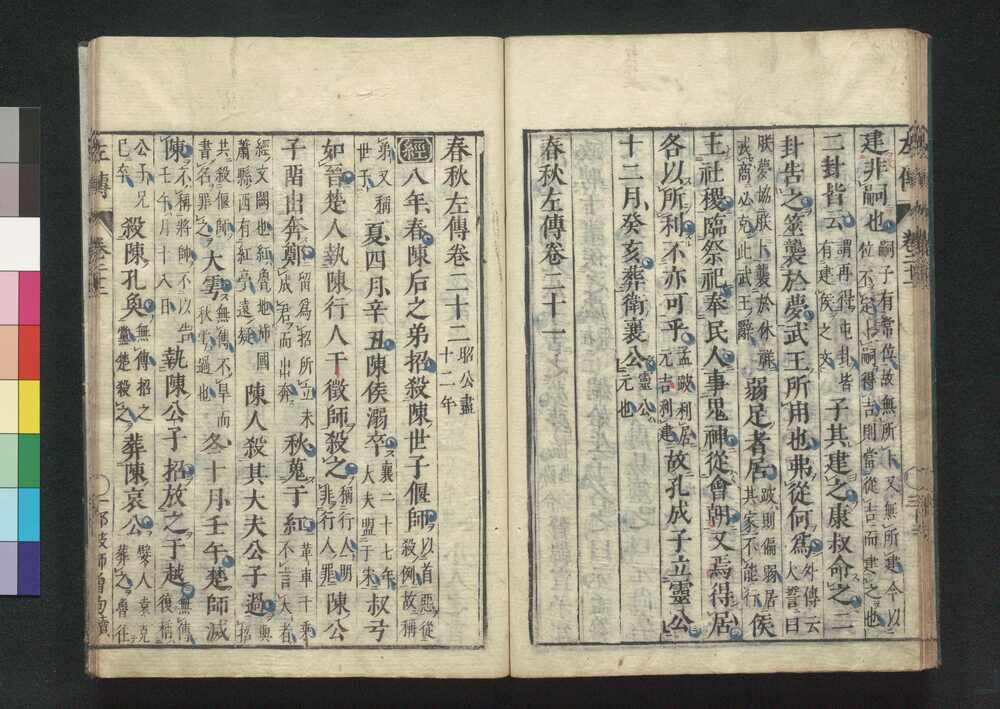 建非嗣也嗣子有常位故無所卜又無所建今以
位不定卜嗣得吉則當從吉而建之也
二卦皆云謂再得屯卦皆
有建侯之文子其建之康叔命之二
卦告之筮襲於夢武王所用也弗從何為外傳云大誓曰
朕夢協朕卜襲於休祥
戎商必克此武王辭弱足者居跛則偏弱居
其家不能行侯
主社稷臨祭祀奉民人事鬼神從會朝又焉得居
各以所利不亦可乎孟跛利居
元吉利建故孔成子立靈公
十二月癸亥葬衛襄公靈公
元也
春秋左傳卷二十一
春秋左傳卷二十二昭公盡
十二年
經八年春陳后之弟招殺陳世子偃師以首惡從
殺例故稱
弟又稱
世子夏四月辛丑陳侯溺卒襄二十七年
大夫盟于宋叔弓
如晉楚人執陳行人干徵師殺之稱行人明
非行人罪陳公
子留出奔鄭留為招所立未
成君而出奔秋蒐于紅革車千乘
不言大者
經文闕也紅魯地沛國
蕭縣西有紅亭遠疑陳人殺其大夫公子過與招
共殺偃師
書名罪之大雩無傳不旱而
秋雩過也冬十月壬午楚師滅
陳不稱將帥不以告
壬午月十八日執陳公子招放之于越無傳
復稱
公子兄
已卒殺陳孔奐無傳招之
黨楚殺之葬陳哀公嬖人袁克
葬之魯往
左傳 卷二十二